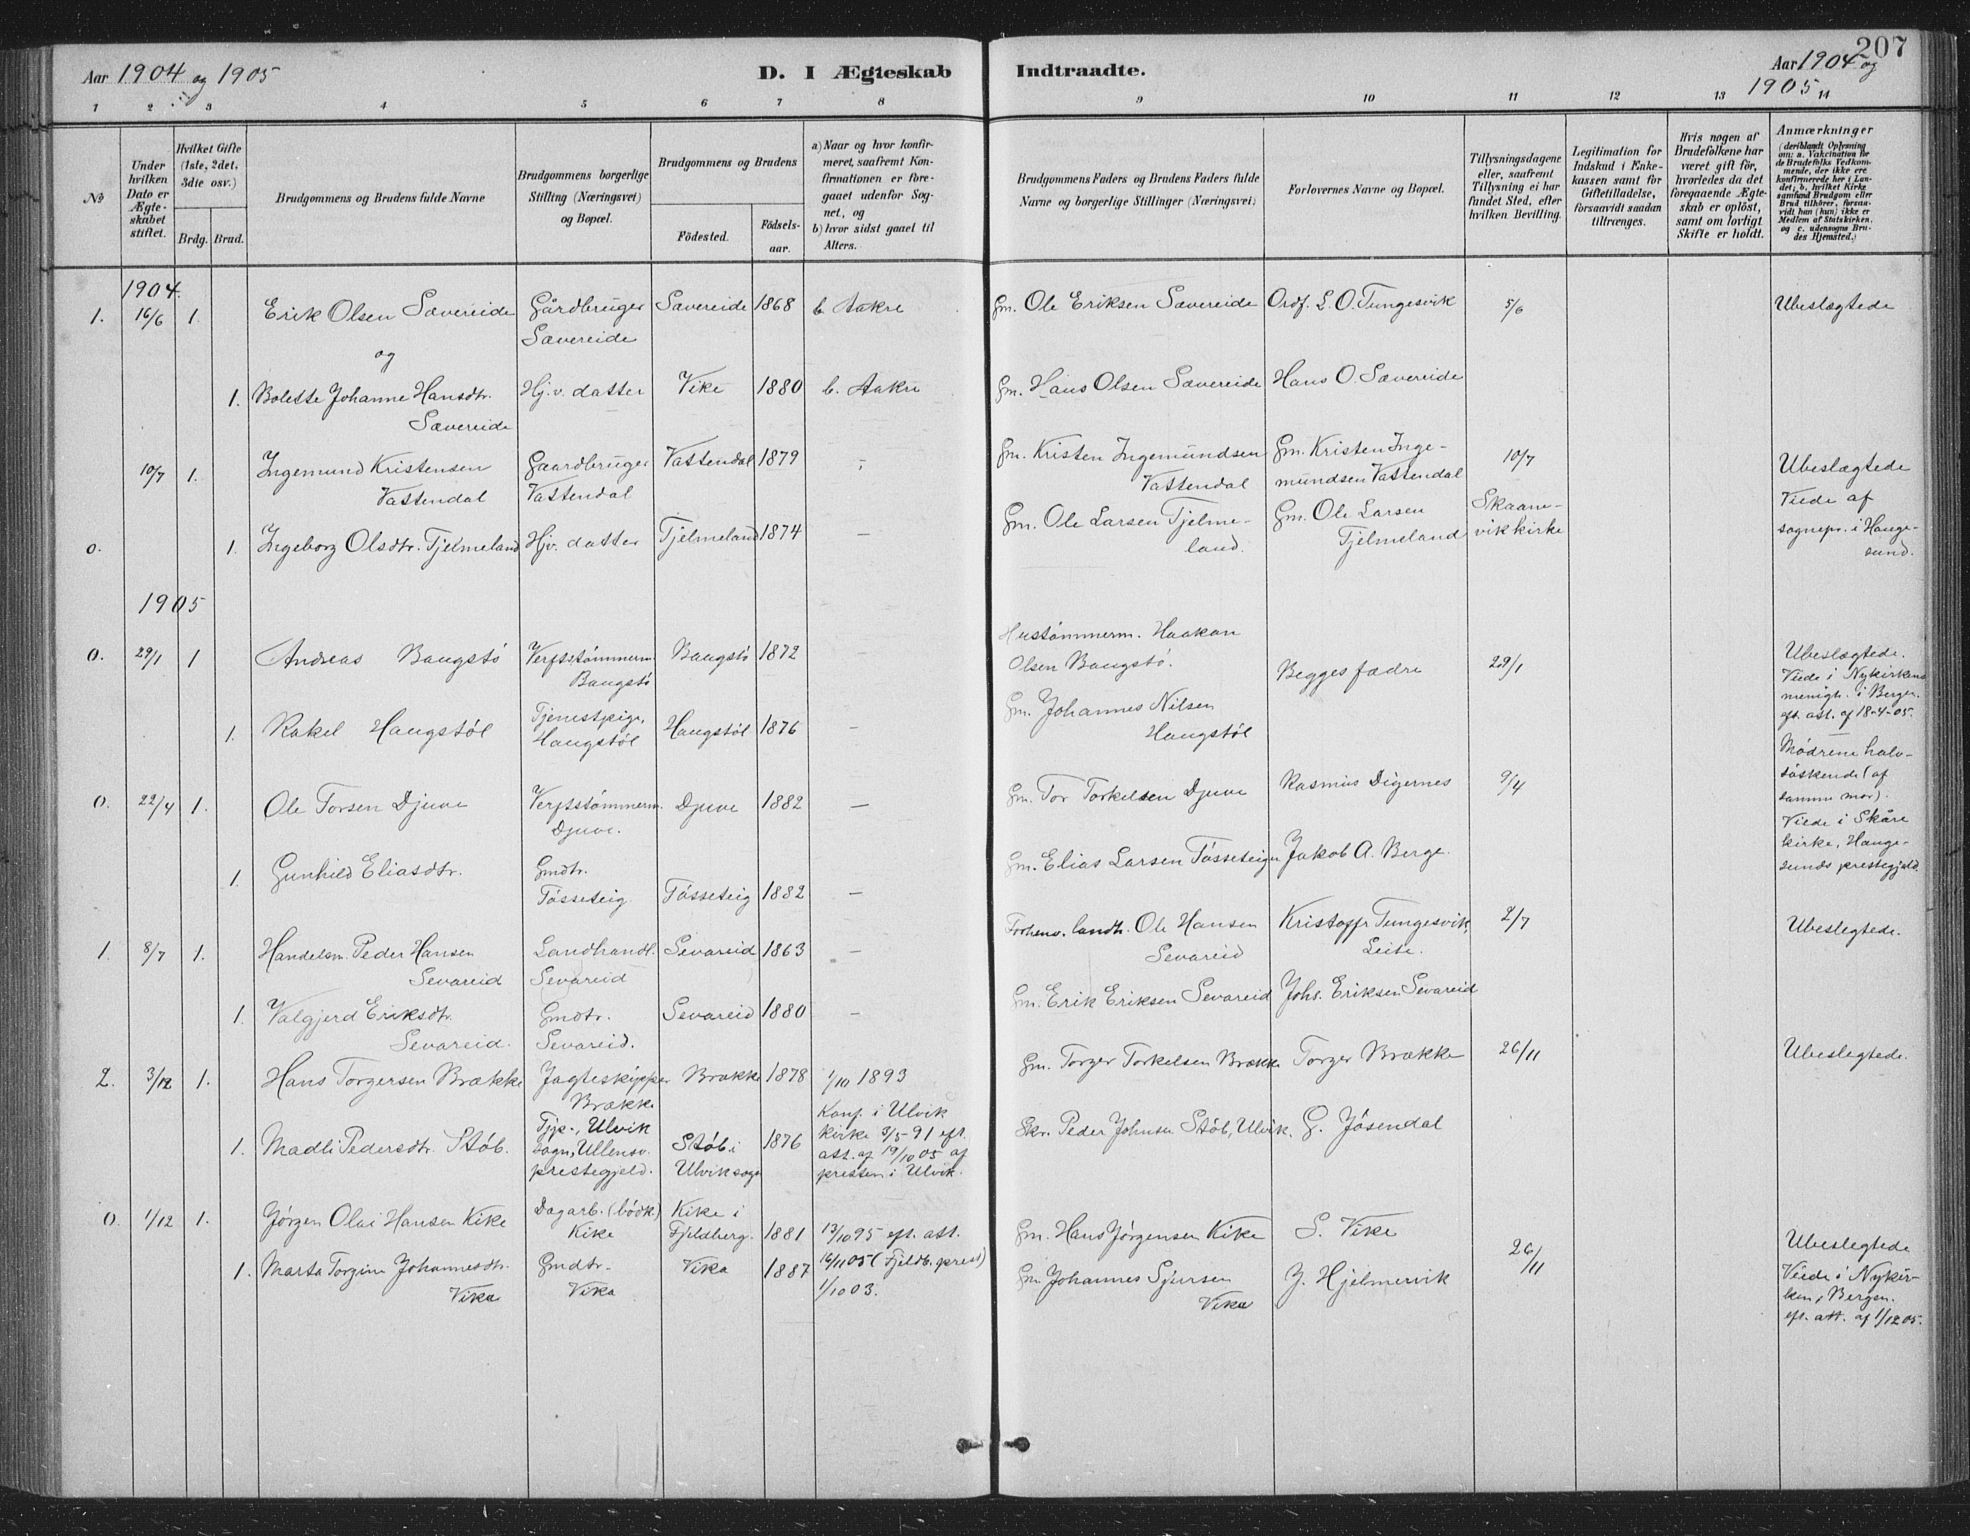 207
Aar 1904 og 1905
D. I Ægteskab Indtraadte.
Aar 1904 og
1905
1 2 3 4 5 6 7 8 9 10 11 12 13 14
No
Under hvilken Dato er Ægteskabet stiftet.
Hvilket Gifte (1ste, 2det, 3die osv.)
Brdg. Brud.
Brudgommens og Brudens fulde Navne
Brudgommens borgerlige Stilling (Næringsvei) og Bopæl.
Brudgommens og Brudens
Födested.
Födselsaar.
a) Naar og hvor konfirmeret, saafremt Konfirmationen er foregaaet udenfor Sognet, og
b) hvor sidst gaaet til Alters.
Brudgommens Faders og Brudens Faders fulde Navne og borgerlige Stillinger (Næringsvei)
Forlovernes Navne og Bopæl.
Tillysningsdagene eller, saafremt Tillysning ei har fundet Sted, efter hvilken Bevilling.
Legitimation for Indskud i Enkekassen samt for Giftetilladelse, forsaavidt saadan tiltrænges.
Hvis nogen af Brudefolkene har været gift för, hvorledes da det foregaaende Ægteskab er oplöst, samt om lovligt Skifte er holdt.
Anmærkninger (deriblandt Oplysning om: a. Vakcination for de Brudefolks Vedkommende, der ikke ere konfirmerede her i Landet; b. hvilket Kirkesamfund Brudgom eller Brud tilhörer, forsaavidt han (hun) ikke er Medlem af Statskirken, og c. udensogns Brudes Hjemsted.)
1904.
1. 16/6 1. Erik Olsen Sævereide Gårdbruger Sævereide Savereide 1868 b. Aakre Gm. Ole Eriksen Sævereide Ordf. L. O. Tungesvik 5/6 Ubeslægtede
og
1. Bolette Johanne Hansdtr. Sævereide Hj.v. datter Vike 1880 b. Aakre Gm. Hans Olsen Sævereide Hans O. Sævereide
10/7 1. Ingemund Kristensen Vattendal Gaardbruger Vattendal Vattendal 1879 Gm. Kristen Ingemundsen Vattendal Gm. Kristen Ingemundsen Vattendal 10/7 Ubeslægtede
o. 1. Ingeborg Olsdtr. Tjelmeland Hjv. datter Tjelmeland 1874 — Gm. Ole Larsen Tjelmeland. Gm. Ole Larsen Tjelmeland Skaanevik kirke Viede af sognepr. i Haugesund.
1905
0. 29/1 1 Andreas Baugstö Verftstömmerm. Baugstö Baugstö 1872 — Hustömmerm. Haakon Olsen Baugstö. Begges fædre 29/1 Ubeslægtede. Viede i Nykirkens menigh. i Bergen. eft. att. af 18-4-05.
1. Rakel Haugstöl Tjenestpige, Haugstöl Haugstöl 1876 — Gm. Johannes Nilsen Haugstöl
0. 22/4 1. Ole Torsen Djuve Verftstömmerm. Djuve. Djuve 1882 — Gm. Tor Torkelsen Djuve Rasmus Digernes 9/4 Mödrene halvsöskende (af samme mor). Viede i Skåre kirke, Haugesunds prestegjeld.
1. Gunhild Eliasdtr. Gmdtr. Tösseteig Tösseteig 1882 — Gm. Elias Larsen Tösseteigen Jakob A. Berge.
1. 8/7 1. Handelsm. Peder Hansen Sevareid Landhandl. Sevareid Sevareid 1863 — Forhenv. landh. Ole Hansen Sevareid Kristoffr Tungesvik, Leite. 2/7 Ubeslegtede.
1. Valgjerd Eriksdtr. Sevareid. Gmdtr. Sevareid. Sevareid 1880 — Gm. Erik Eriksen Sevareid Johs. Eriksen Sevareid
2. 3/12 1. Hans Torgersen Brække Jagteskipper Brække Brække 1878 1/10 1893 Gm. Torger Torkelsen Brække Torger Brække 26/11 Ubeslegtede.
1. Madli Pedersdtr. Stöb. Tjp., Ulvik sogn, Ullensv. prestegjeld. Stöb i Ulvik sogn 1876 Konf. i Ulvik kirke 3/5-91 eft. att. af 19/10 05 af presten i Ulvik. Skr. Peder Johnsen Stöb, Ulvik. G. Jösendal
0. 1/12 1. Jörgen Olai Hansen Kike Dagarb. (bödk) Kike Kike i Fjeldberg. 1881 13/10 95 eft. att. 16/11 05 (Fjeldb. prest) Gm. Hans Jörgensen Kike S. Vike 26/11 Ubeslegtede
1. Marta Torgine Johannesdtr. Vika Gmdtr. Vika Vika 1887 1/10 03. Gm. Johannes Sjursen Vika J. Hjelmervik Viede i Nykirken, Bergen. eft. att. af 1/12 05.